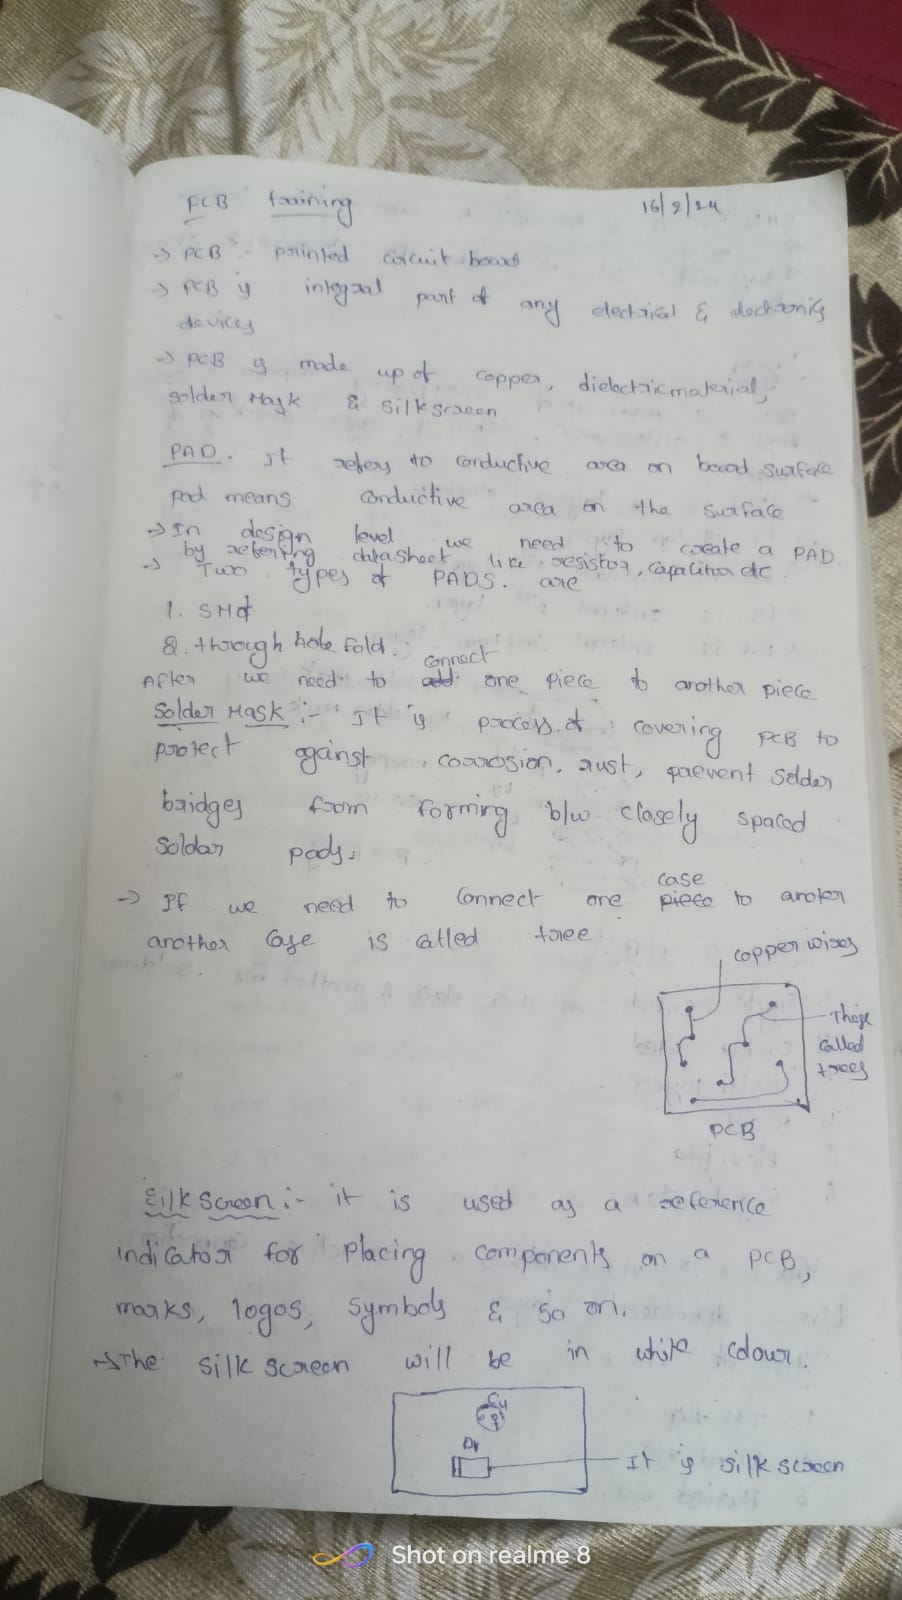 PCB training 16/2/24
→ PCB :- printed circuit board
→ PCB is integral part of any electrical & electronics
devices
→ PCB is made up of copper, dielectric material,
solder Mask & silkscreen
PAD. It refers to conductive area on board surface
pad means conductive area on the surface
→ In design level we need to create a PAD
by referring datasheet like resistor, capacitor etc
→ Two types of PADS. are
1. SMd
2. through hole fold.
connect
After we need to one piece to another piece
Solder Mask :- It is process of covering PCB to
protect against corrosion, rust, prevent solder
bridges from forming b/w closely spaced
soldar pads.
case
→ If we need to connect one piece to anoter
another case is called tree
copper wires
These
called
trees
PCB
Silk screen :- it is used as a reference
indicator for placing components on a PCB,
marks, logos, symbols & so on.
→ The silk screen will be in white colour.
It is silk screen
Shot on realme 8